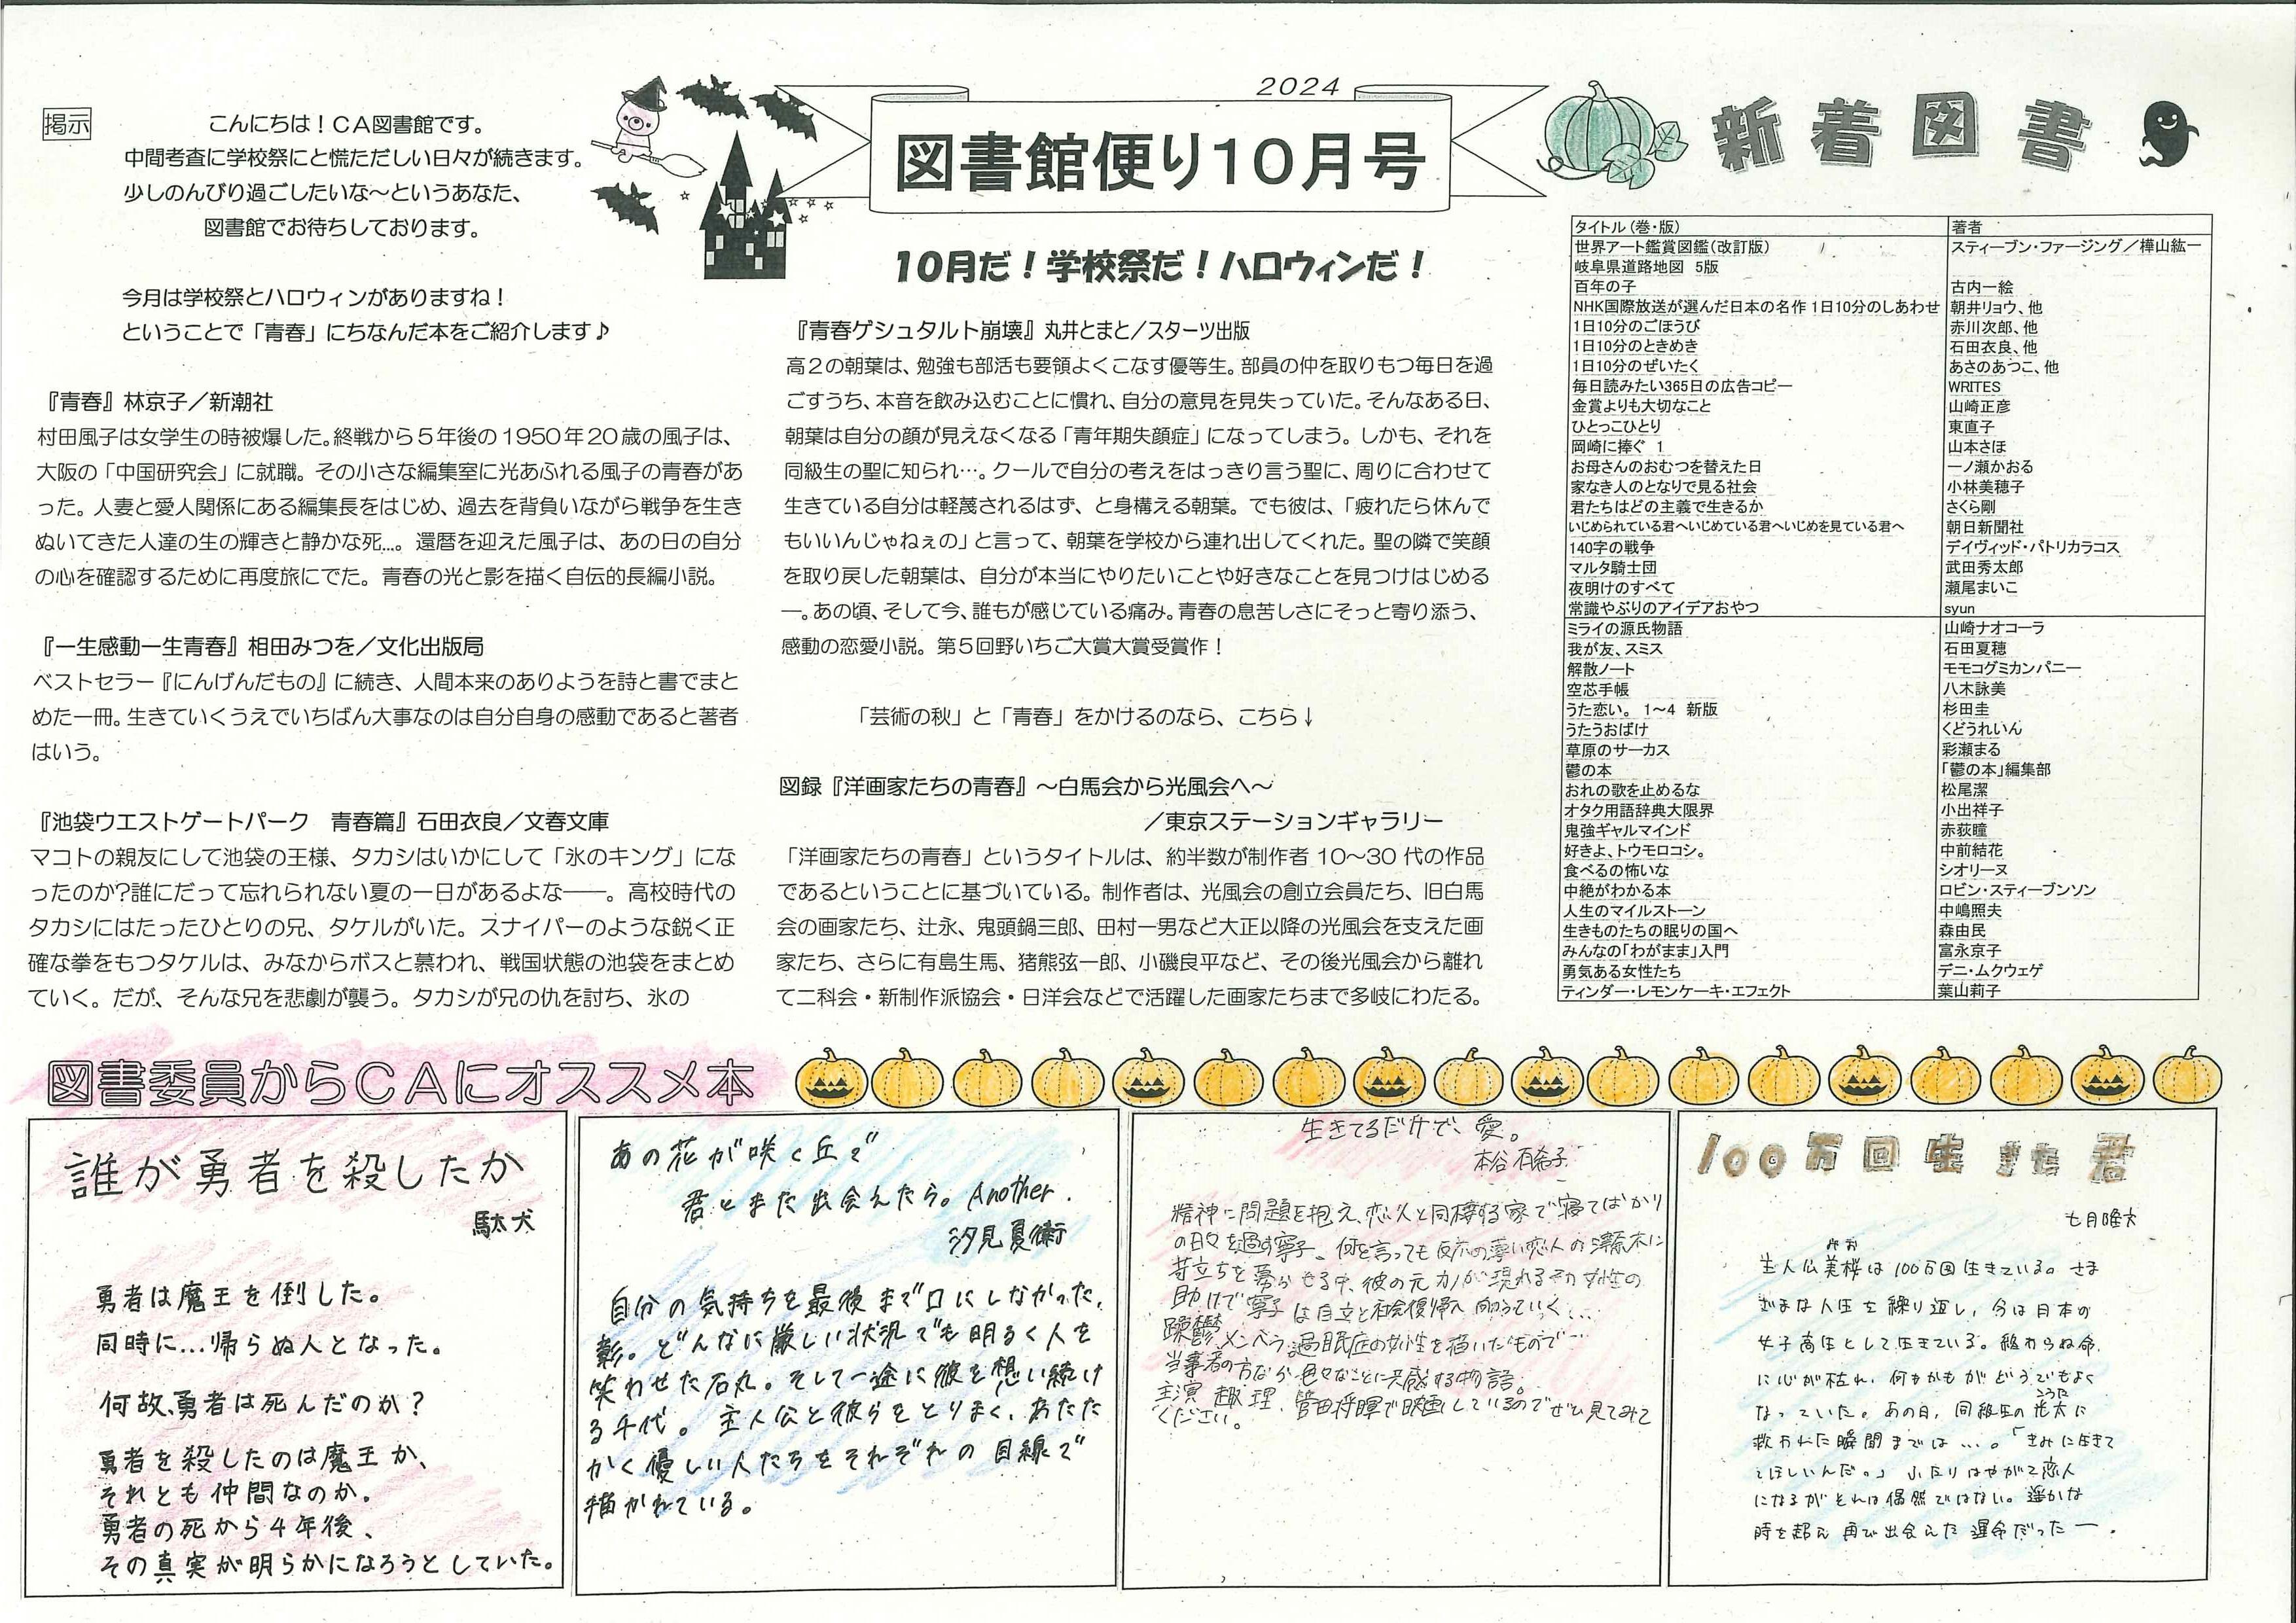 掲示
こんにちは！ＣＡ図書館です。
中間考査に学校祭にと慌ただしい日々が続きます。
少しのんびり過ごしたいな～というあなた、
図書館でお待ちしております。
今月は学校祭とハロウィンがありますね！
ということで「青春」にちなんだ本をご紹介します♪
『青春』林京子／新潮社
村田風子は女学生の時被爆した。終戦から５年後の1950年20歳の風子は、
大阪の「中国研究会」に就職。その小さな編集室に光あふれる風子の青春があ
った。人妻と愛人関係にある編集長をはじめ、過去を背負いながら戦争を生き
ぬいてきた人達の生の輝きと静かな死…。還暦を迎えた風子は、あの日の自分
の心を確認するために再度旅にでた。青春の光と影を描く自伝的長編小説。
『一生感動一生青春』相田みつを／文化出版局
ベストセラー『にんげんだもの』に続き、人間本来のありようを詩と書でまと
めた一冊。生きていくうえでいちばん大事なのは自分自身の感動であると著者
はいう。
『池袋ウエストゲートパーク　青春篇』石田衣良／文春文庫
マコトの親友にして池袋の王様、タカシはいかにして「氷のキング」にな
ったのか?誰にだって忘れられない夏の一日があるよな――。高校時代の
タカシにはたったひとりの兄、タケルがいた。スナイパーのような鋭く正
確な拳をもつタケルは、みなからボスと慕われ、戦国状態の池袋をまとめ
ていく。だが、そんな兄を悲劇が襲う。タカシが兄の仇を討ち、氷の
2024
図書館便り10月号
10月だ！学校祭だ！ハロウィンだ！
『青春ゲシュタルト崩壊』丸井とまと／スターツ出版
高２の朝葉は、勉強も部活も要領よくこなす優等生。部員の仲を取りもつ毎日を過
ごすうち、本音を飲み込むことに慣れ、自分の意見を見失っていた。そんなある日、
朝葉は自分の顔が見えなくなる「青年期失顔症」になってしまう。しかも、それを
同級生の聖に知られ…。クールで自分の考えをはっきり言う聖に、周りに合わせて
生きている自分は軽蔑されるはず、と身構える朝葉。でも彼は、「疲れたら休んで
もいいんじゃねぇの」と言って、朝葉を学校から連れ出してくれた。聖の隣で笑顔
を取り戻した朝葉は、自分が本当にやりたいことや好きなことを見つけはじめる
―。あの頃、そして今、誰もが感じている痛み。青春の息苦しさにそっと寄り添う、
感動の恋愛小説。第５回野いちご大賞大賞受賞作！
「芸術の秋」と「青春」をかけるのなら、こちら↓
図録『洋画家たちの青春』～白馬会から光風会へ～
／東京ステーションギャラリー
「洋画家たちの青春」というタイトルは、約半数が制作者 10～30 代の作品
であるということに基づいている。制作者は、光風会の創立会員たち、旧白馬
会の画家たち、辻永、鬼頭鍋三郎、田村一男など大正以降の光風会を支えた画
家たち、さらに有島生馬、猪熊弦一郎、小磯良平など、その後光風会から離れ
て二科会・新制作派協会・日洋会などで活躍した画家たちまで多岐にわたる。
新着図書
タイトル（巻・版） 著者
世界アート鑑賞図鑑（改訂版） スティーブン・ファージング／樺山紘一
岐阜県道路地図 5版
百年の子 古内一絵
NHK国際放送が選んだ日本の名作 1日10分のしあわせ 朝井リョウ、他
1日10分のごほうび 赤川次郎、他
1日10分のときめき 石田衣良、他
1日10分のぜいたく あさのあつこ、他
毎日読みたい365日の広告コピー WRITES
金賞よりも大切なこと 山崎正彦
ひとっこひとり 東直子
岡崎に捧ぐ 1 山本さほ
お母さんのおむつを替えた日 一ノ瀬かおる
家なき人のとなりで見る社会 小林美穂子
君たちはどの主義で生きるか さくら剛
いじめられている君へいじめている君へいじめを見ている君へ 朝日新聞社
140字の戦争 デイヴィッド・パトリカラコス
マルタ騎士団 武田秀太郎
夜明けのすべて 瀬尾まいこ
常識やぶりのアイデアおやつ syun
ミライの源氏物語 山崎ナオコーラ
我が友、スミス 石田夏穂
解散ノート モモコグミカンパニー
空芯手帳 八木詠美
うた恋い。 1～4 新版 杉田圭
うたうおばけ くどうれいん
草原のサーカス 彩瀬まる
鬱の本 「鬱の本」編集部
おれの歌を止めるな 松尾潔
オタク用語辞典大限界 小出祥子
鬼強ギャルマインド 赤荻瞳
好きよ、トウモロコシ。 中前結花
食べるの怖いな シオリーヌ
中絶がわかる本 ロビン・スティーブンソン
人生のマイルストーン 中嶋照夫
生きものたちの眠りの国へ 森由民
みんなの「わがまま」入門 富永京子
勇気ある女性たち デニ・ムクウェゲ
ティンダー・レモンケーキ・エフェクト 葉山莉子
図書委員からＣＡにオススメ本
誰が勇者を殺したか
駄犬
勇者は魔王を倒した。
同時に…帰らぬ人となった。
何故、勇者は死んだのか？
勇者を殺したのは魔王か、
それとも仲間なのか。
勇者の死から４年後、
その真実が明らかになろうとしていた。
あの花が咲く丘で
君とまた出会えたら。Another.
汐見夏衛
自分の気持ちを最後まで口にしなかった、
彰。どんなに厳しい状況でも明るく人を
笑わせた石丸。そして一途に彼を想い続け
る千代。主人公と彼らをとりまく、あたた
かく優しい人たちをそれぞれの目線で
描かれている。
生きてるだけで、愛。
本谷有希子
精神に問題を抱え、恋人と同棲する家で寝てばかり
の日々を過す寧子、何を言っても反応の薄い恋人の津奈木に
苛立ちを募らせる中、彼の元カノが現れその女性の
助けで寧子は自立と社会復帰へ向かっていく…
躁鬱メンヘラ過眠症の女性を描いたもので…
当事者の方なら色々なことに共感する物語。
主演 趣里、菅田将暉で映画しているのでぜひ見てみて
ください。
100万回生きた君
七月隆文
みお
主人公美桜は100万回生きている。さま
ざまな人生を繰り返し、今は日本の
女子高生として生きている。終わらぬ命
に心が枯れ、何もかもがどうでもよく
こうた
なっていた。あの日、同級生の光太に
救われた瞬間までは…。「きみに生きて
てほしいんだ。」ふたりはやがて恋人
になるがそれは偶然ではない。遥かな
時を超え再び出会えた運命だった―.